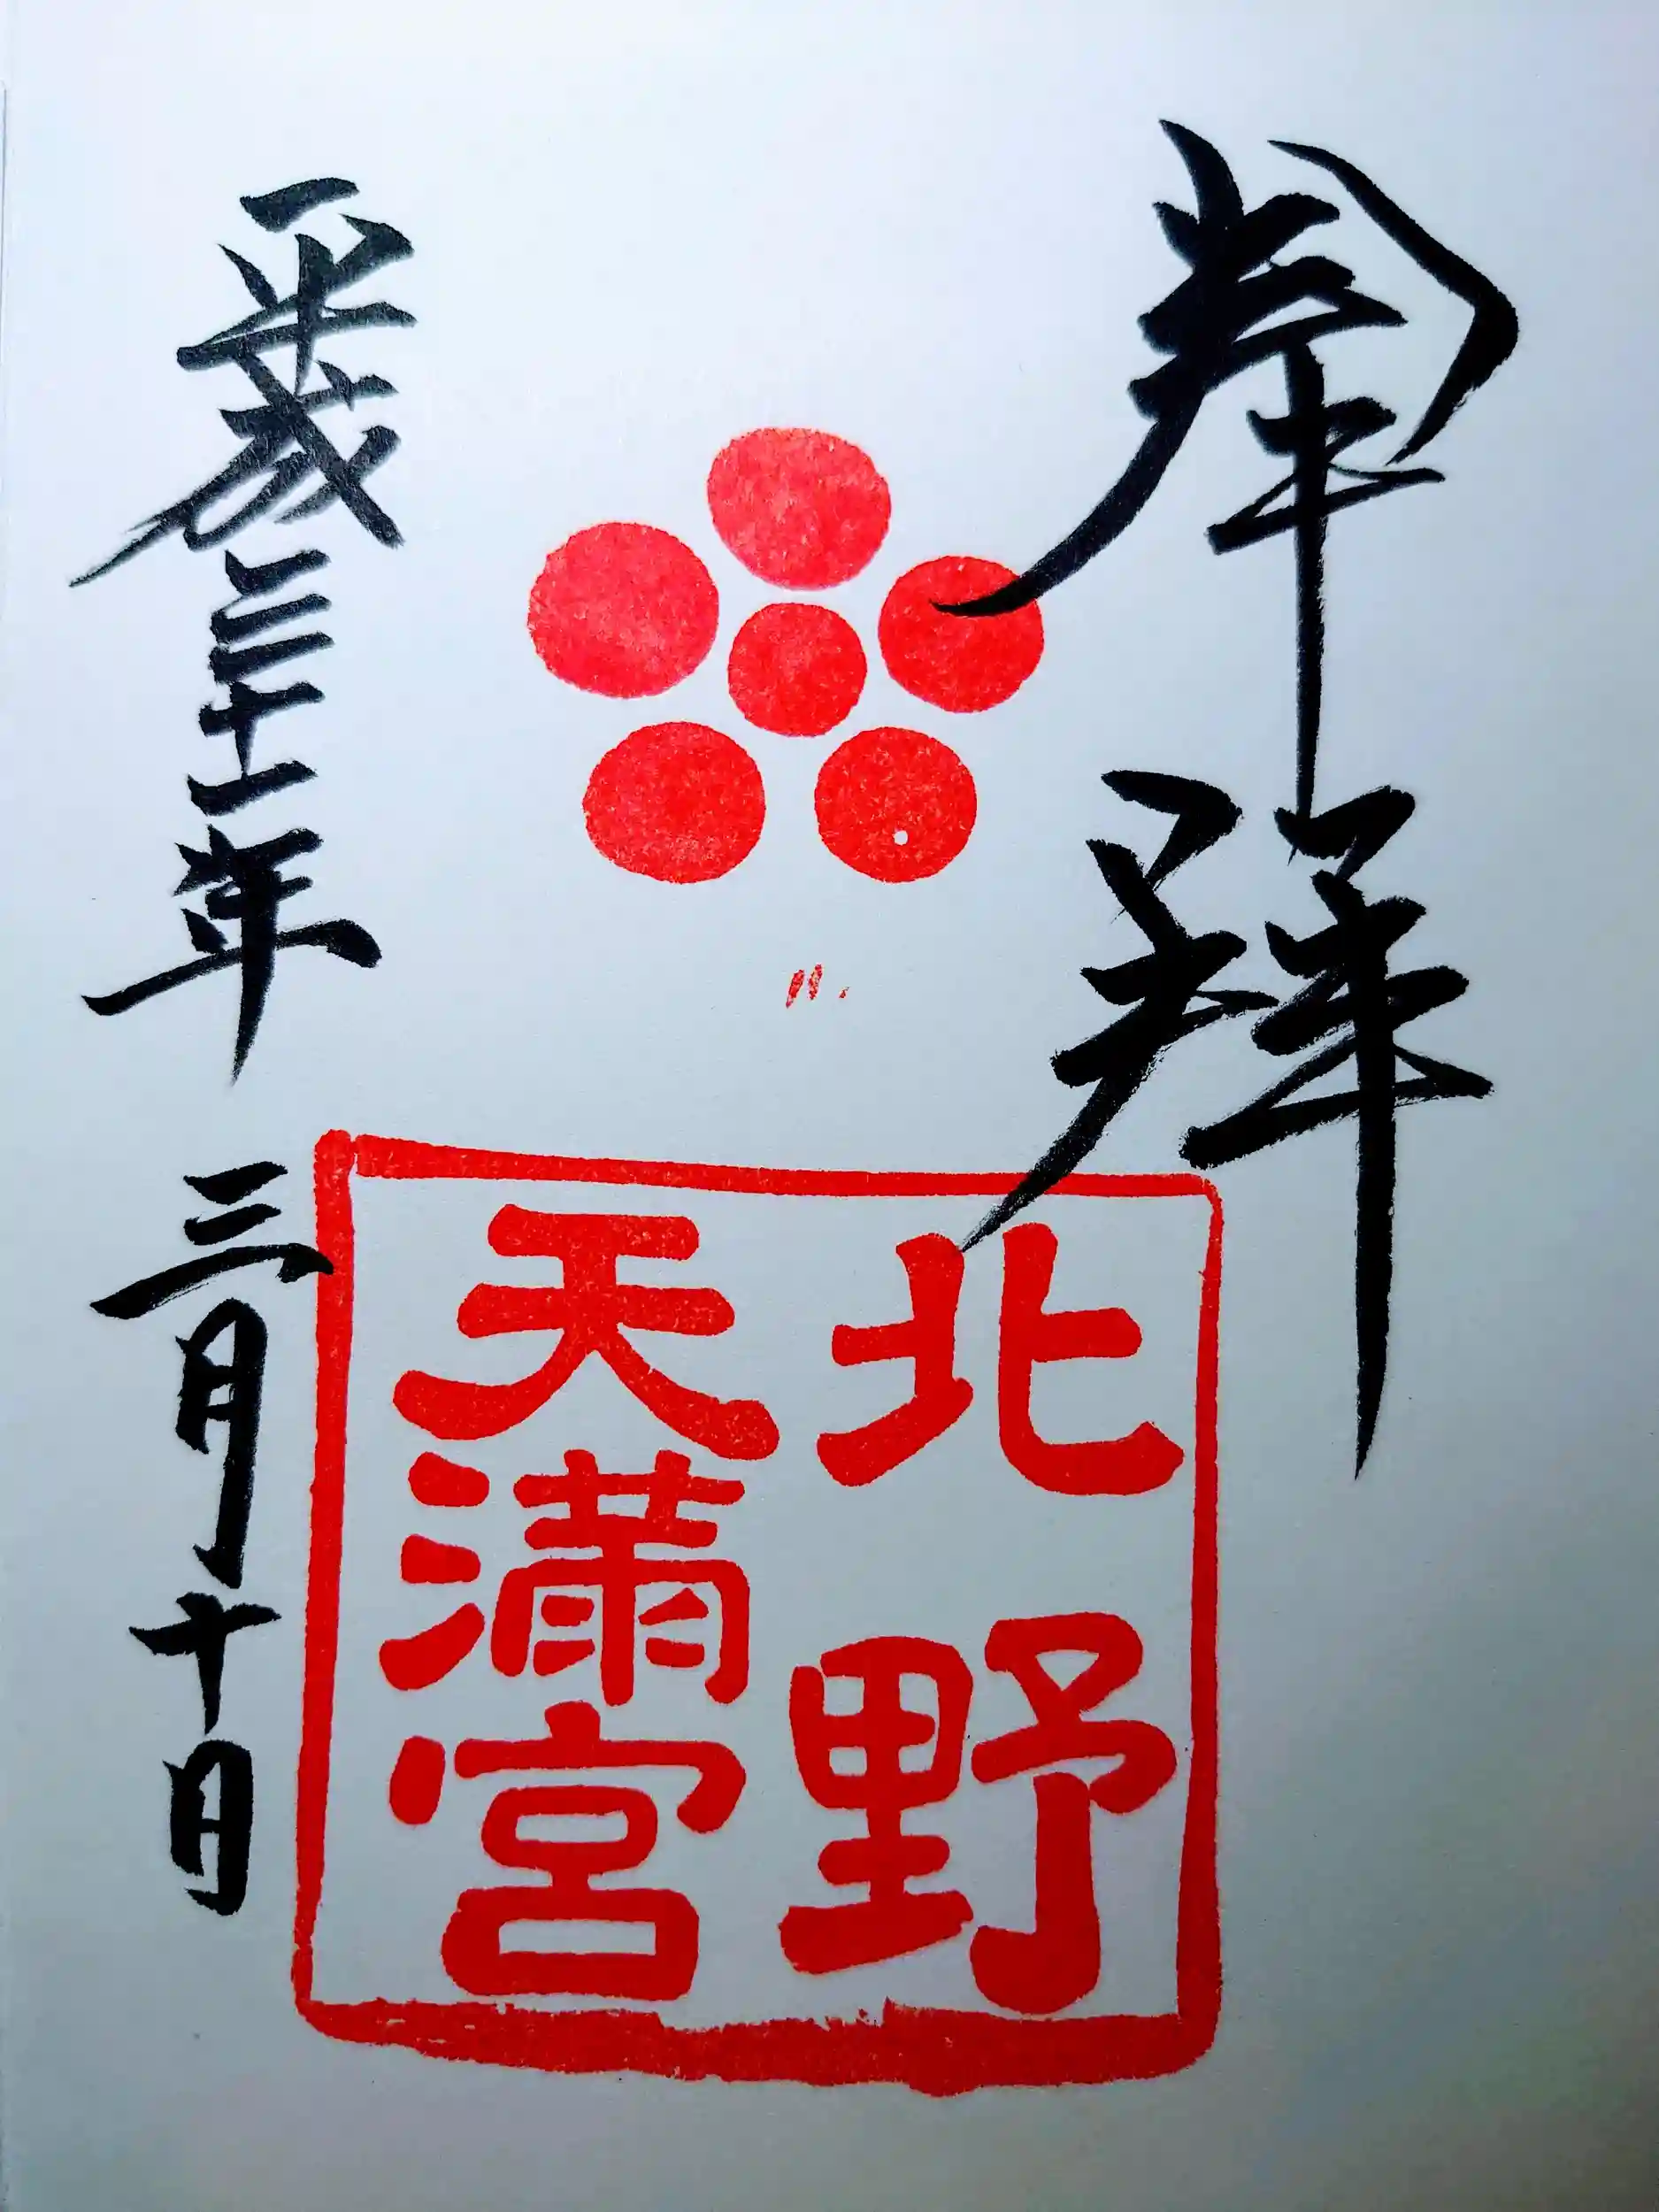 奉拝
北野
天満宮
平成三十一年三月十日